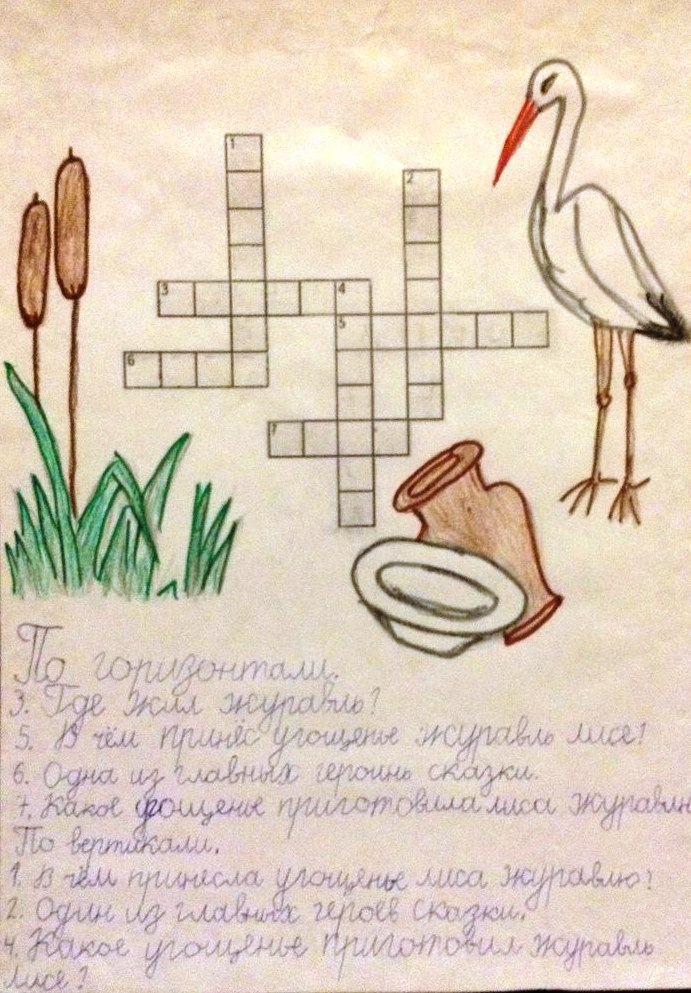 1
2
3 4
5
6
7
По горизонтали.
3. Где жил журавль?
5. В чём принёс угощенье журавль лисе?
6. Одна из главных героинь сказки.
7. Какое угощенье приготовила лиса журавлю
По вертикали.
1. В чём принесла угощенье лиса журавлю?
2. Один из главных героев сказки.
4. Какое угощенье приготовил журавль
лисе?